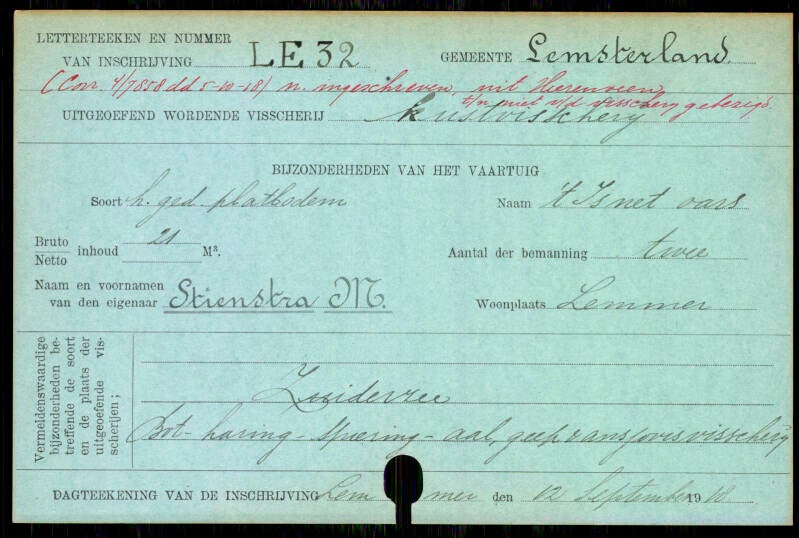 LETTERTEEKEN EN NUMMER
VAN INSCHRIJVING LE 32 GEMEENTE Lemsterland.
(Corr. 4/7858 dd 5-10-18) n. ingeschreven, uit Hierenveen,
t/n niet v/d visscherij gebezigd.
UITGEOEFEND WORDENDE VISSCHERIJ Kustvisscherij
BIJZONDERHEDEN VAN HET VAARTUIG
Soort h. ged. platbodem Naam 't Is net oars
Bruto 21
Netto inhoud M³. Aantal der bemanning twee
Naam en voornamen
van den eigenaar Stienstra M. Woonplaats Lemmer
Vermeldenswaardige
bijzonderheden be-
treffende de soort
en de plaats der
uitgeoefende vis-
scherijen;
Zuiderzee
Bot- haring- spiering- aal, geep & ansjovisvisscherij
DAGTEEKENING VAN DE INSCHRIJVING Lemmer den 12 September 1918.